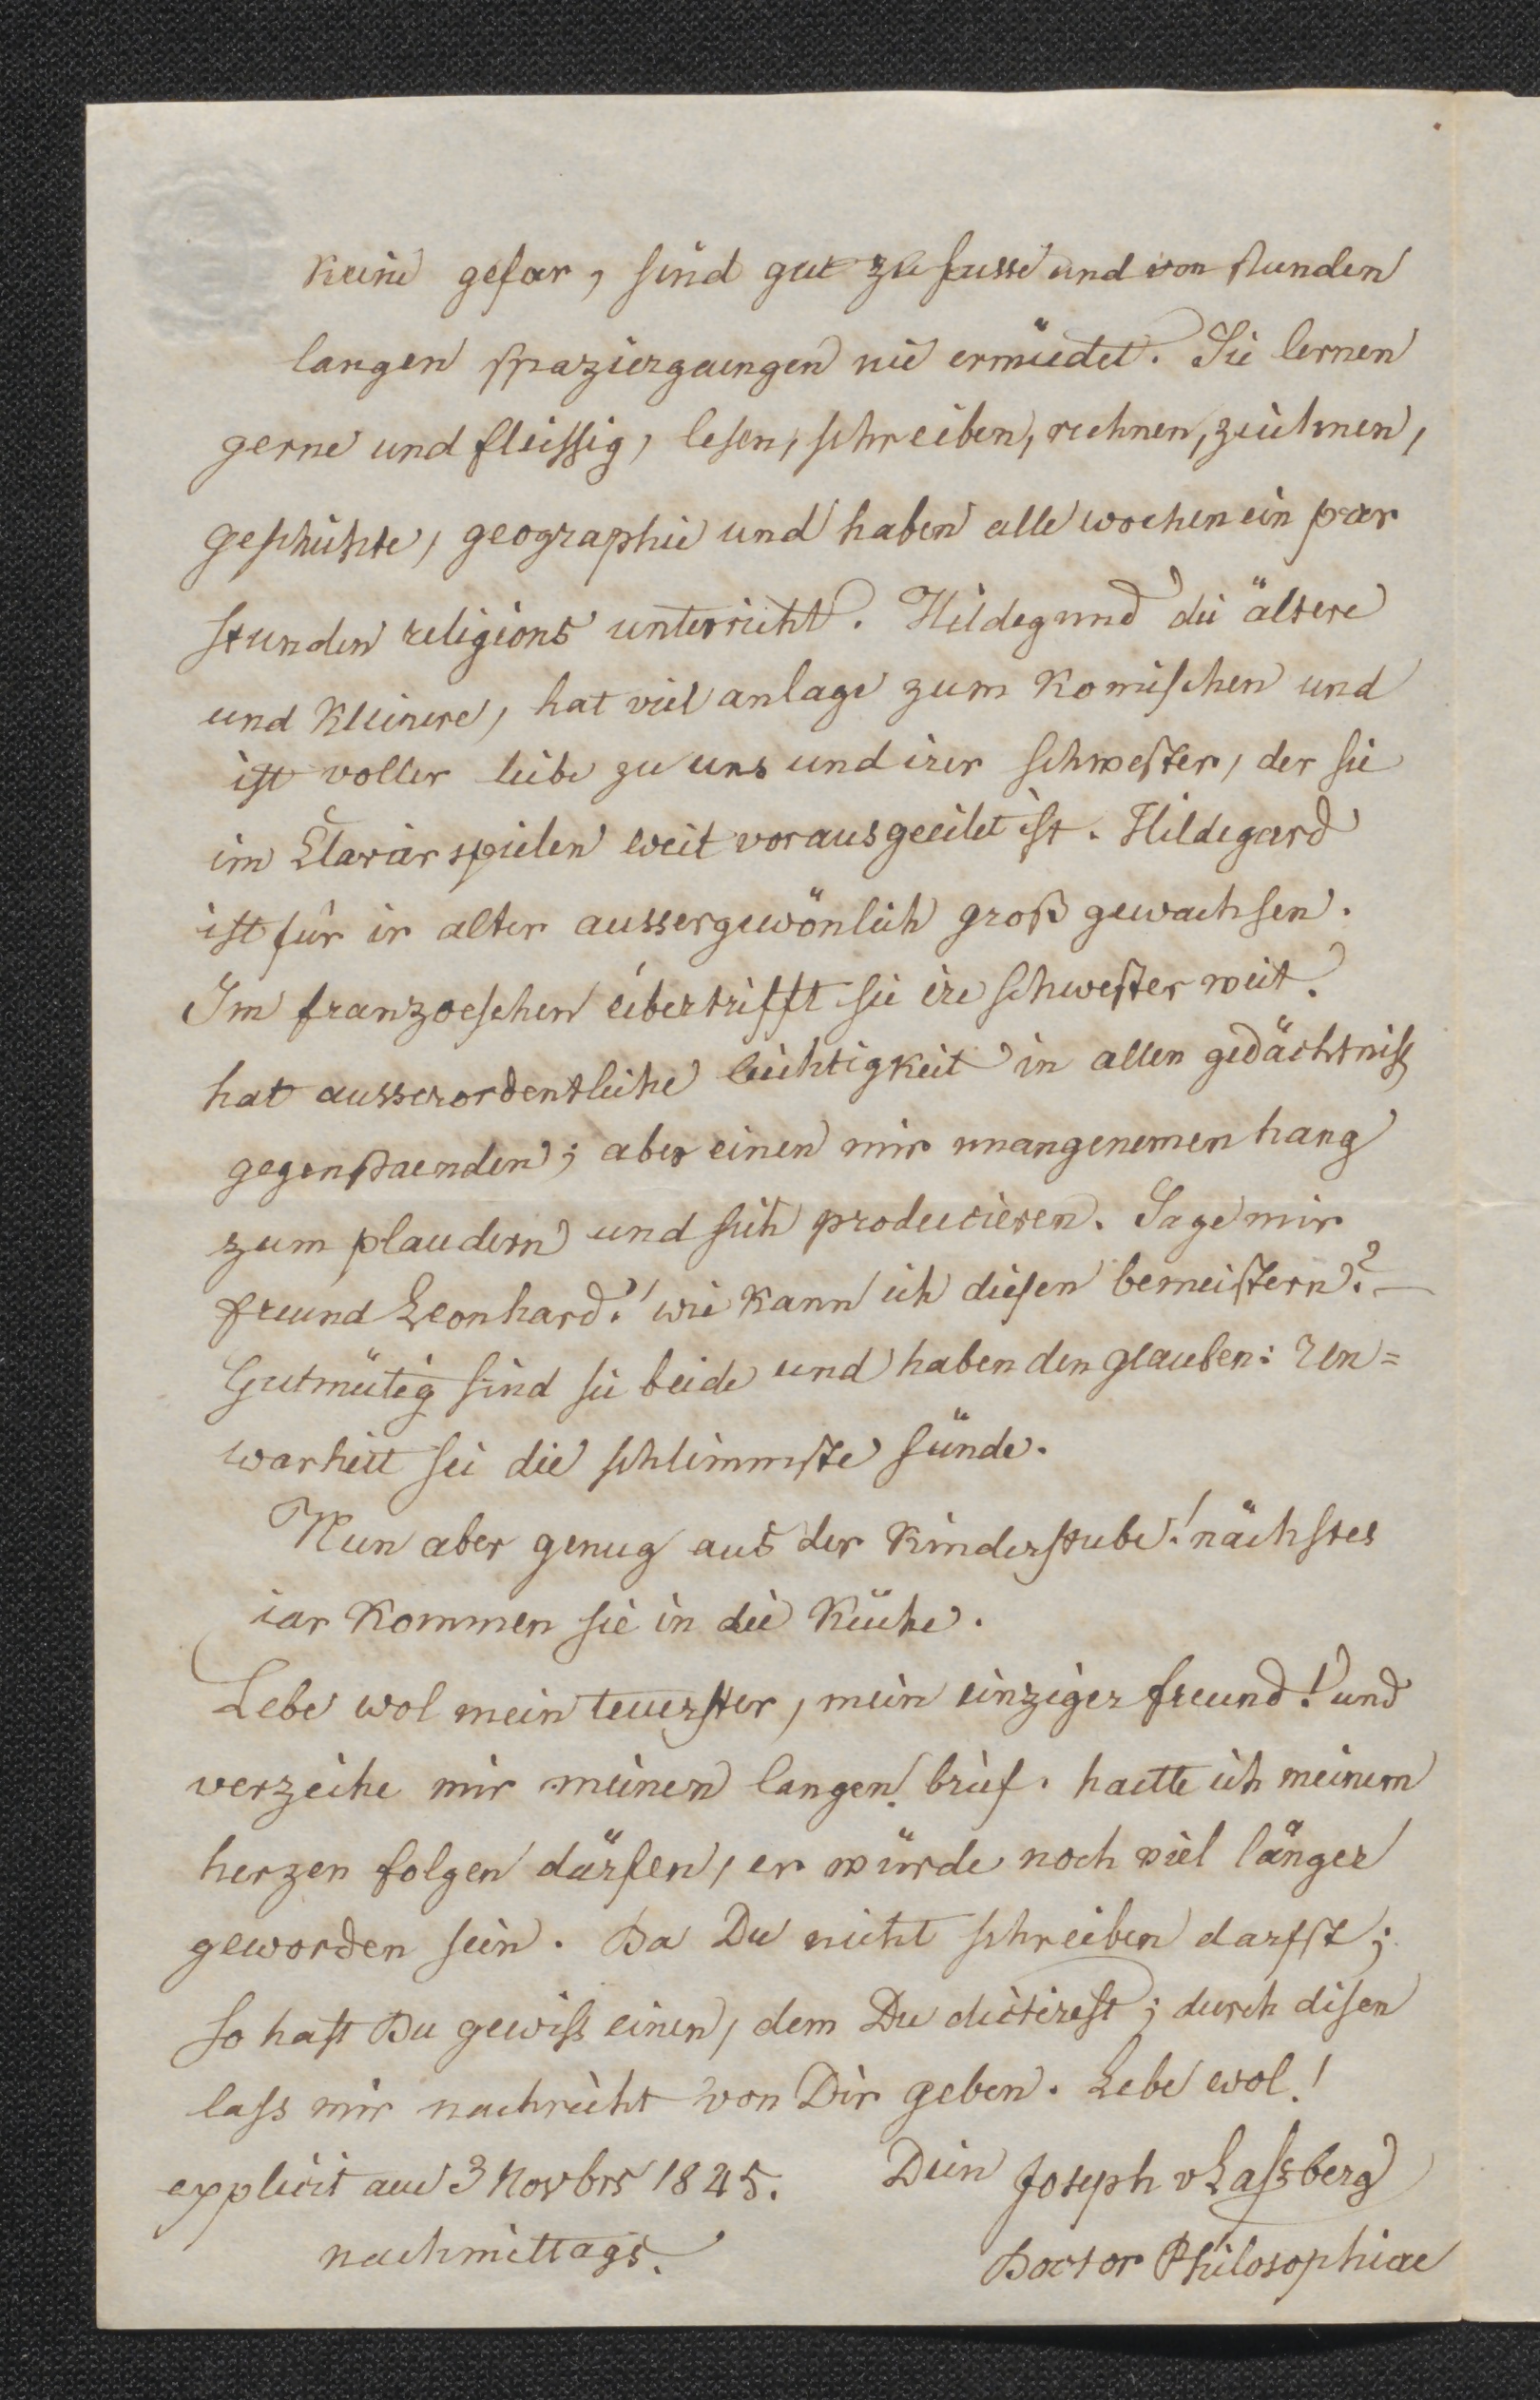 keine gefar, sind gut zu fusse und von stunden
langen spaziergaengen nie ermüdet. Sie lernen
gerne und fleissig, lesen, schreiben, rechnen, zeichnen,
geschichte, geographie und haben alle wochen ein par
stunden religions unterricht. Hildegund die ältere
und kleinere, hat viel anlage zum komischen und
ist voller liebe zu uns und irer schwester, der sie
im Clavier spielen weit vorausgeeilet ist. Hildegard
ist für ir alter aussergewönlich groß gewachsen.
Im franzoeschen übertrifft sie ire schwester weit.
hat ausserordentliche leichtigkeit in allen gedächtniss
gegenstaenden; aber einen mir unangenemen hang
zum plaudern und sich producieren. Sage mir
freund Leonhard! wie kann ich diesen bemeistern? —
Gutmütig sind sie beide und haben den glauben: Un=
warheit sei die schlimmste sünde.
Nun aber genug aus der kinderstube! nächstes
iar kommen sie in die küche.
Lebe wol mein teuerster, mein einziger freund! und
verzeihe mir meinen langen brief. haette ich meinem
herzen folgen dürfen, er würde noch viel länger
geworden sein. Da Du nicht schreiben darfst;
so hast Du gewiss einen, dem Du dictirest; durch disen
lass mir nachricht von Dir geben. Lebe wol!
explicit am 3 Novbrs 1845. Dein Joseph v Lassberg
nachmittags. Doctor Philosophiae